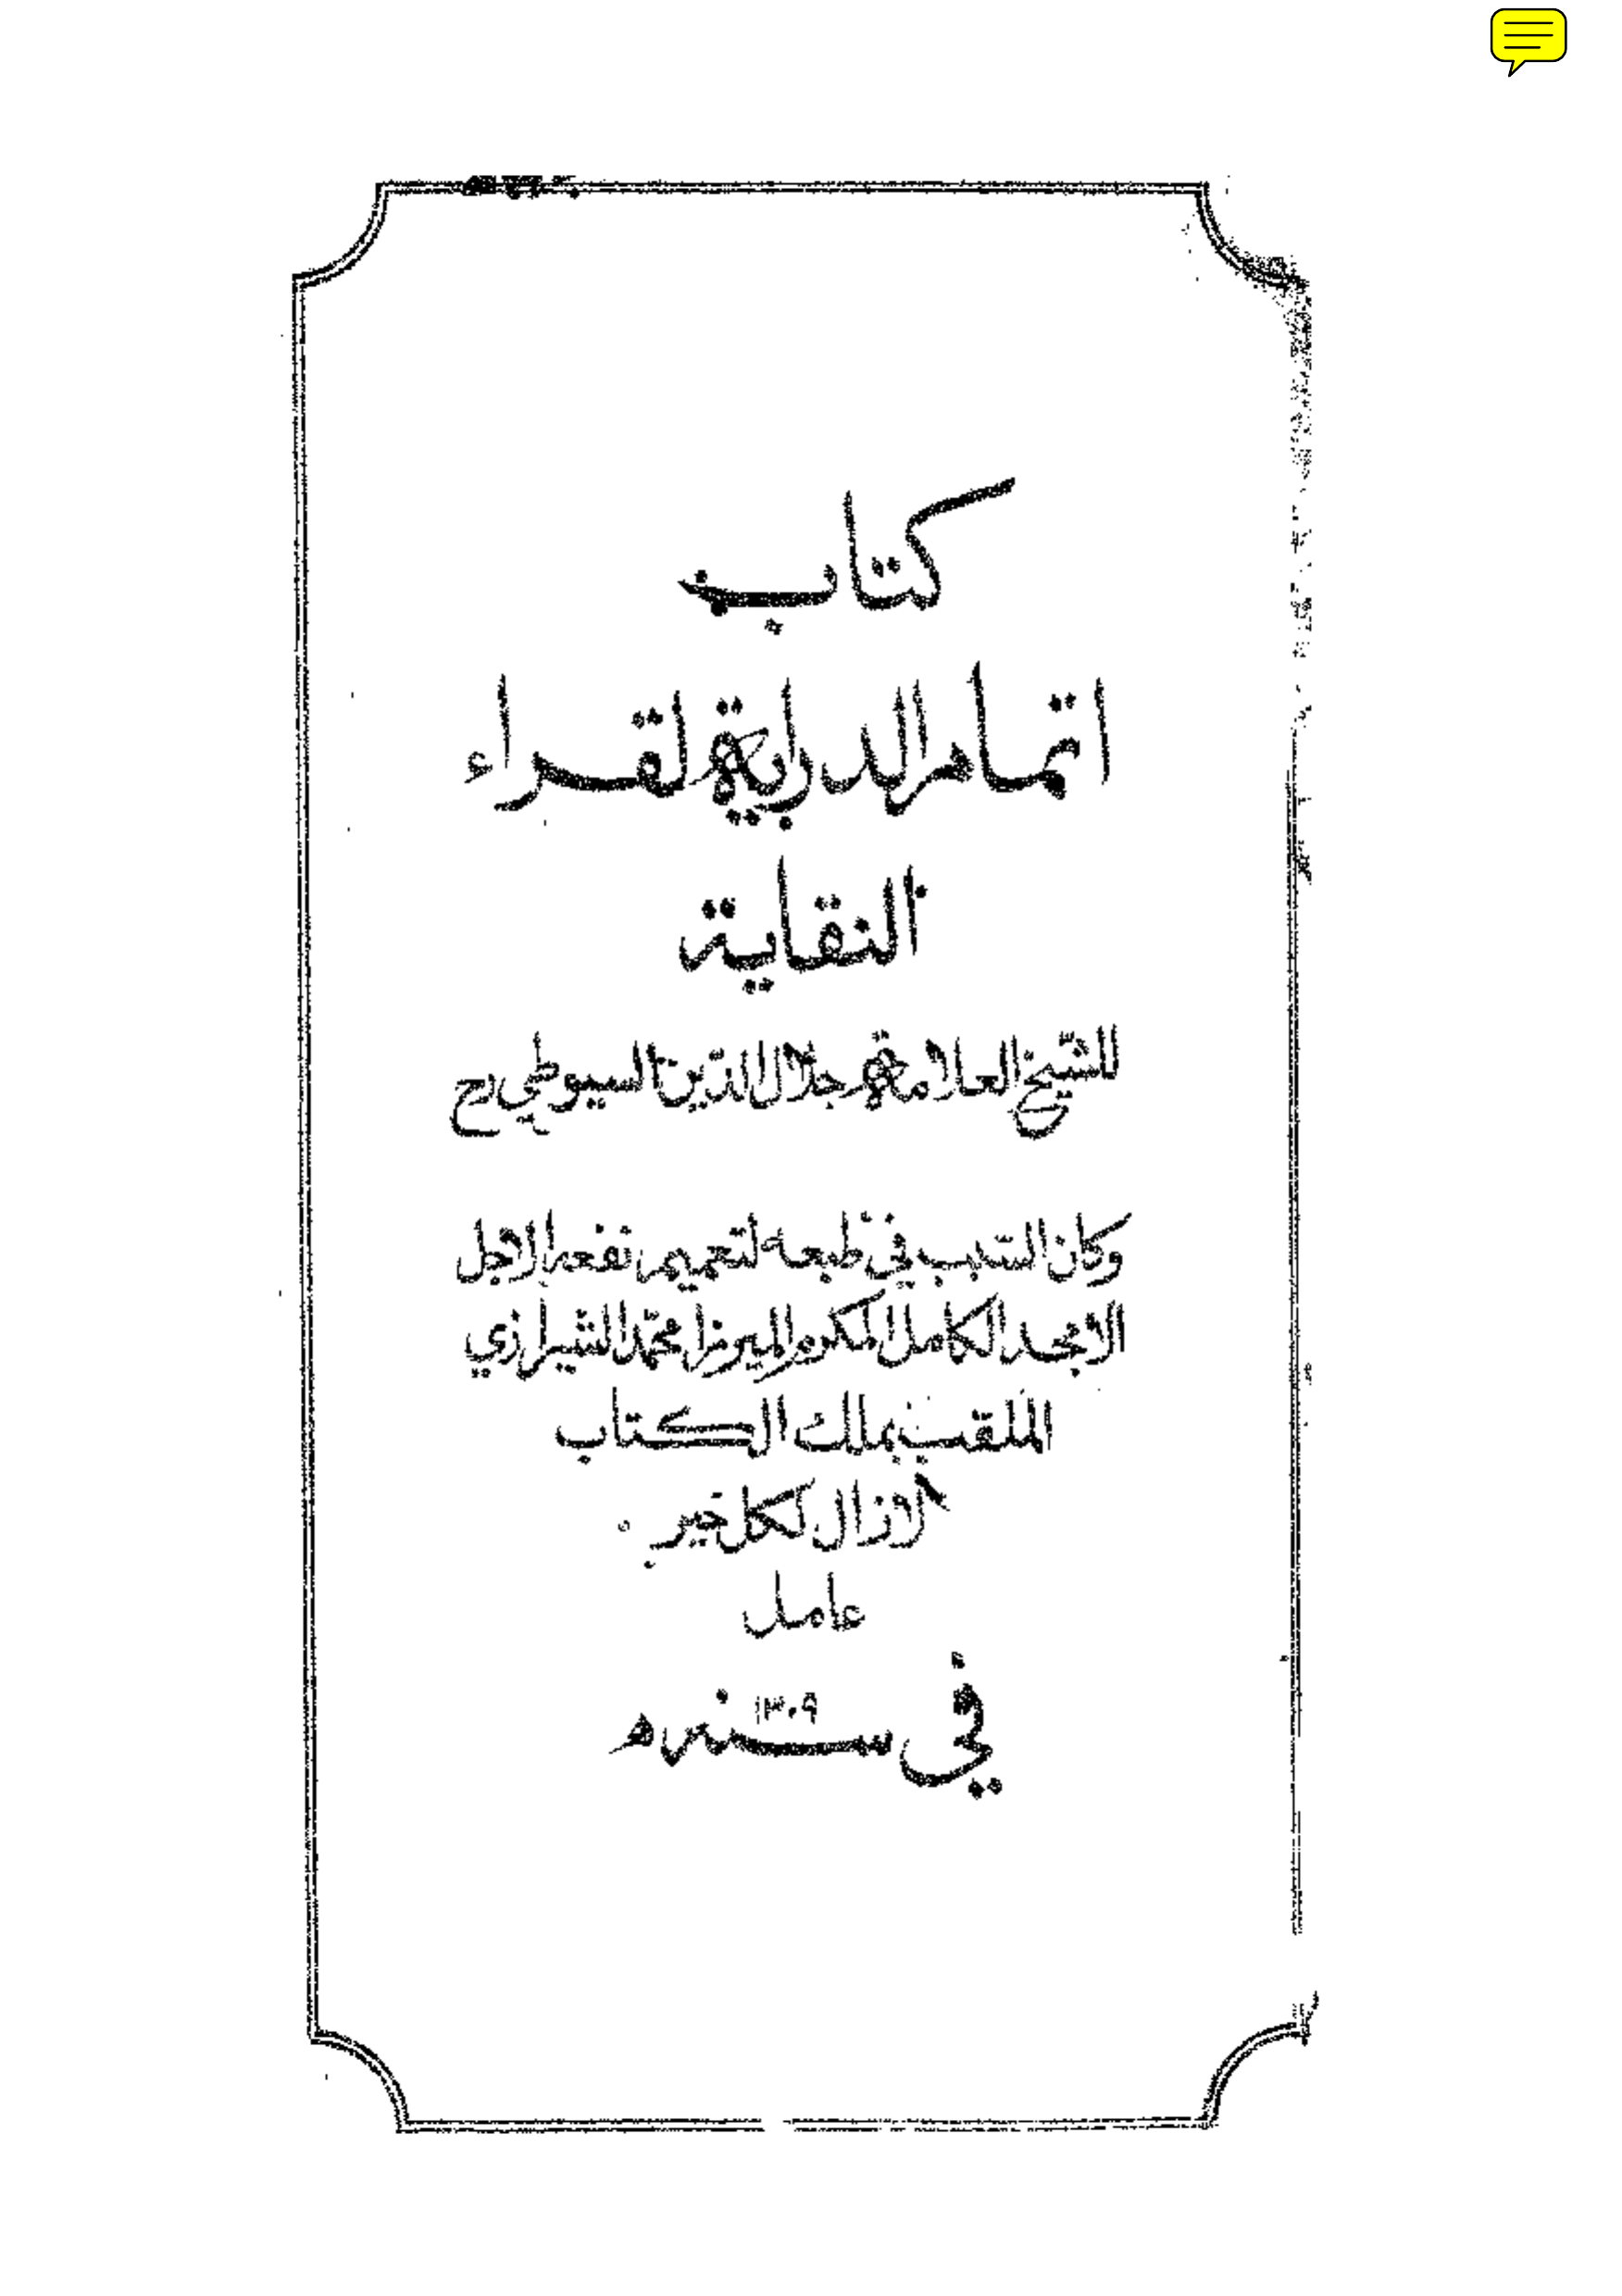 كتاب
اتمام الدراية لقراء
النقاية
للشيخ العلامة جلال الدين السيوطي رح
وكان السبب في طبعه لتعميم نفعه الاجل
الامجد الكامل المكرم الميرزا محمّد الشيرازي
الملقب بملك الكتاب
لازال لكل خير
عامل
في سنه ١٣٠٩ ه